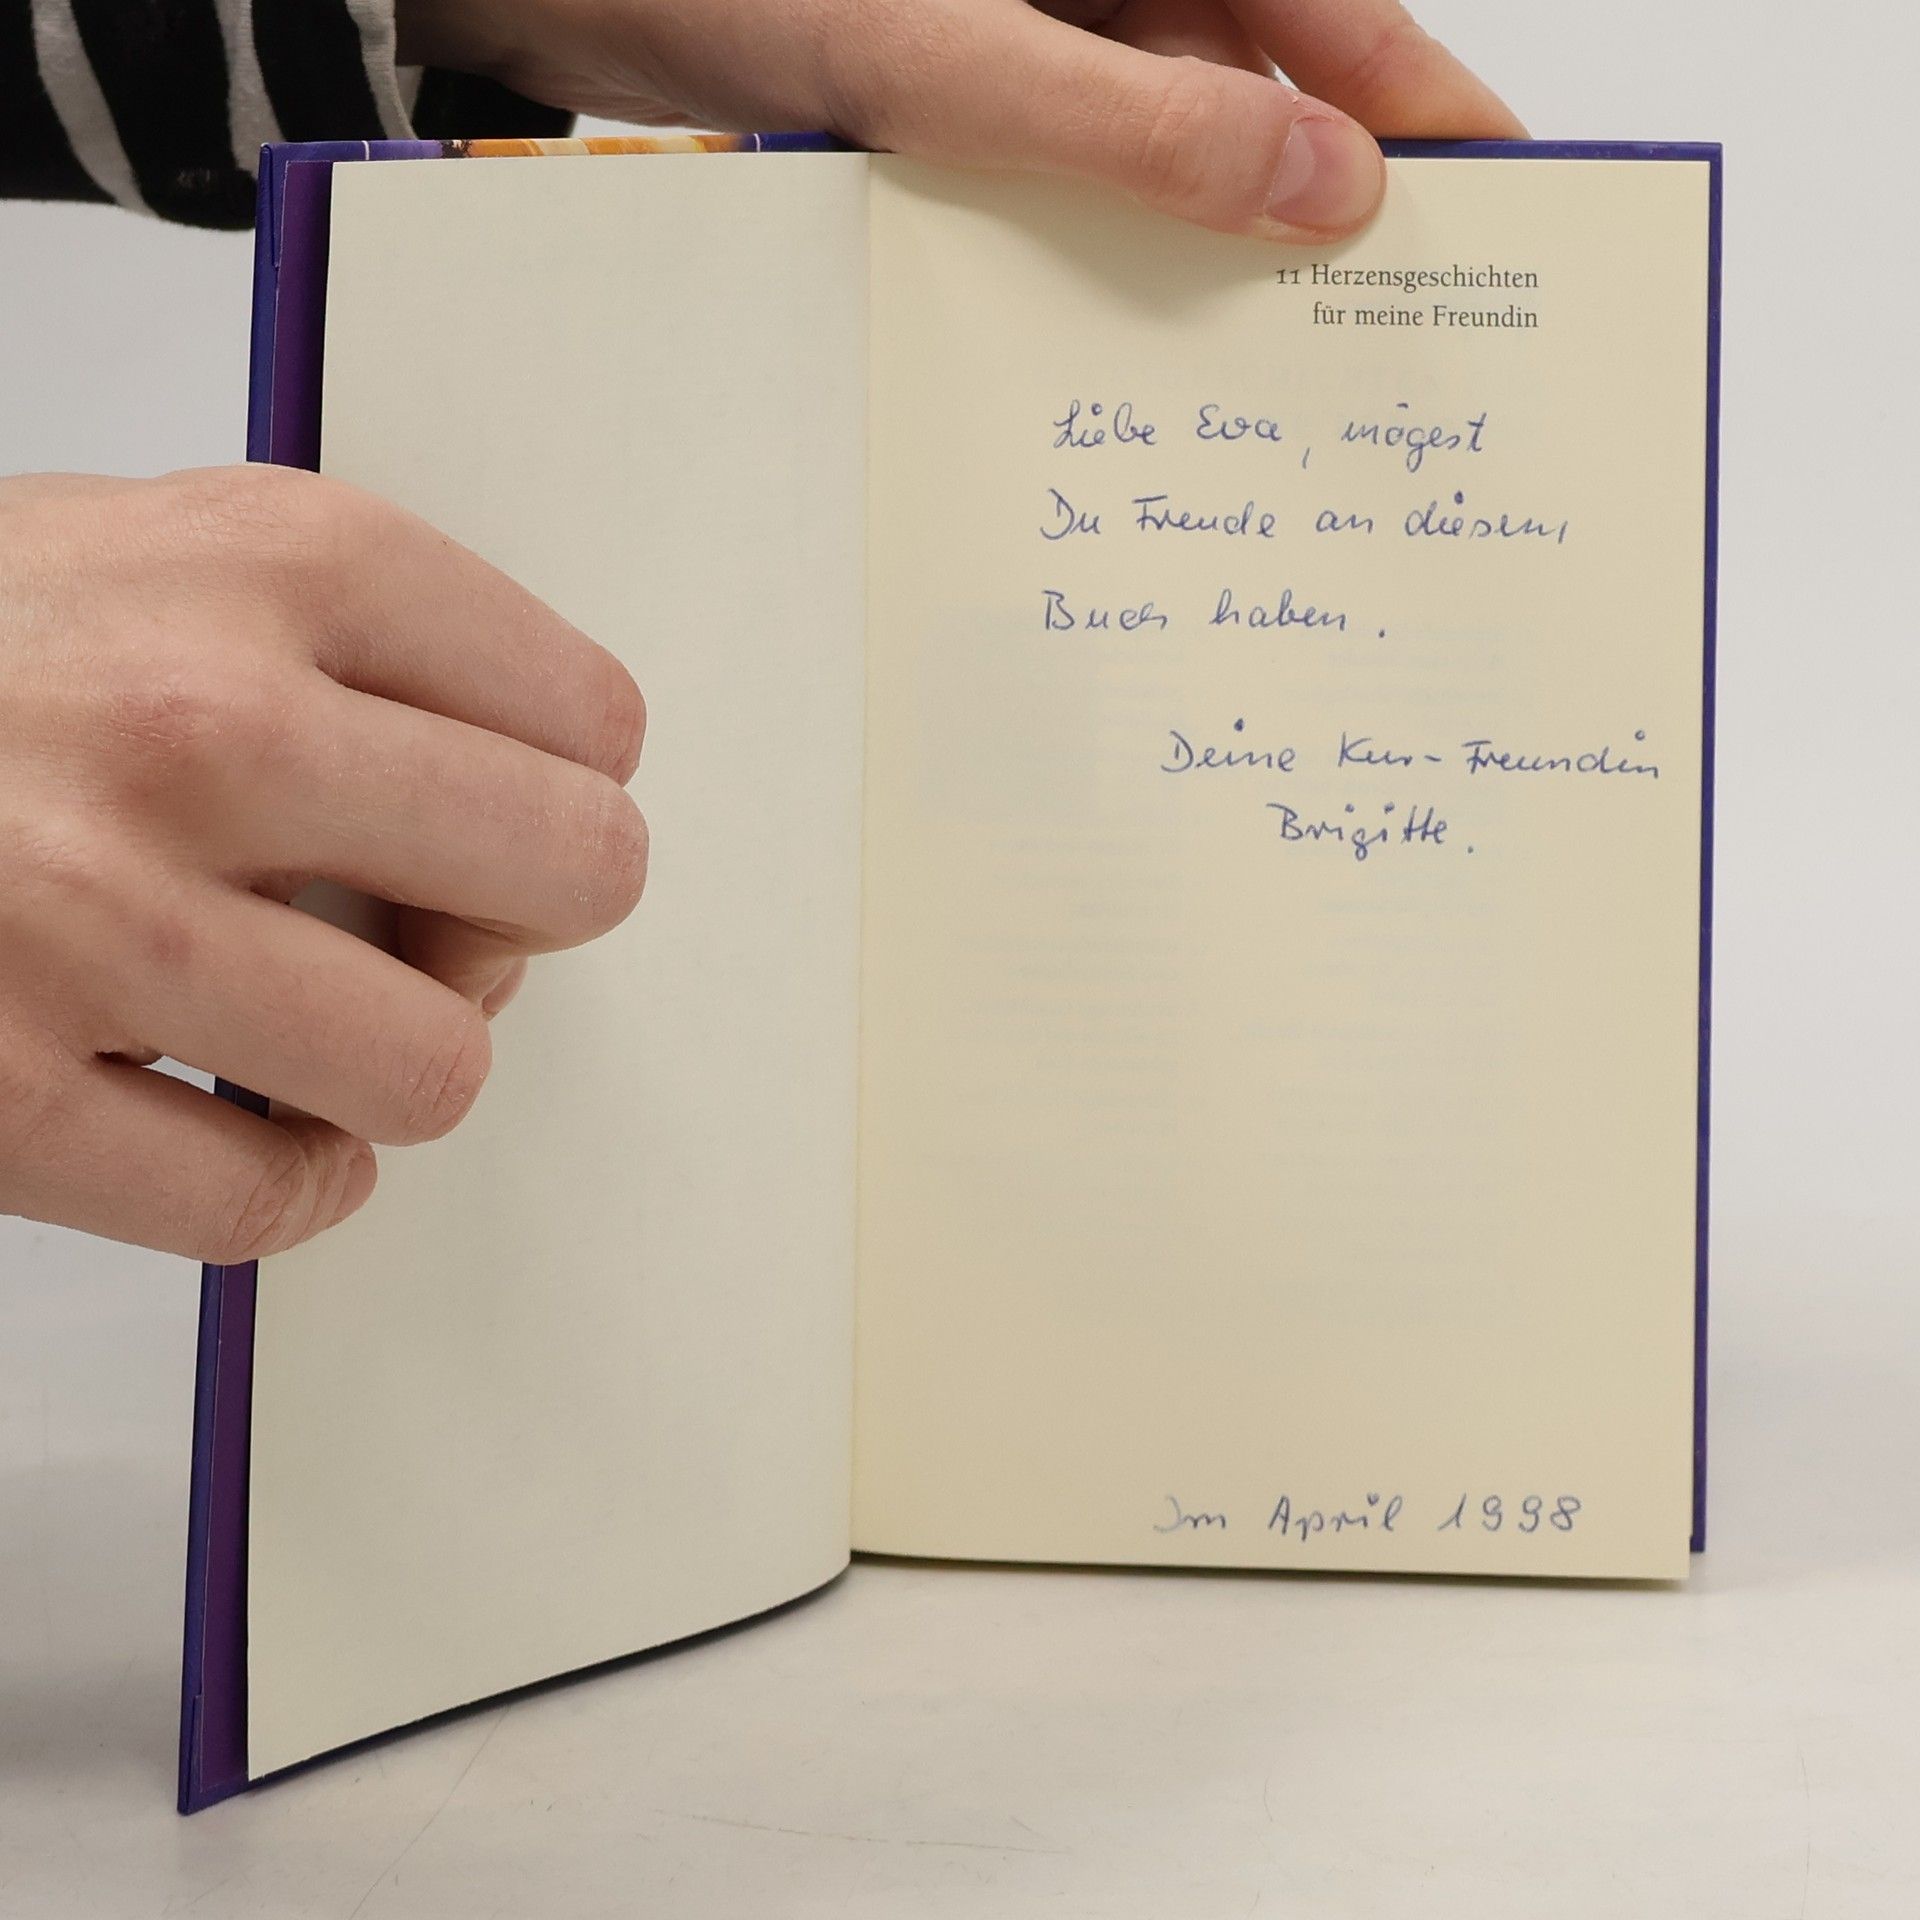 11 Herzensgeschichten
für meine Freundin
Liebe Eva, mögest
Du Freude an diesem
Buch haben.
Deine Kur-Freundin
Brigitte.
Im April 1998